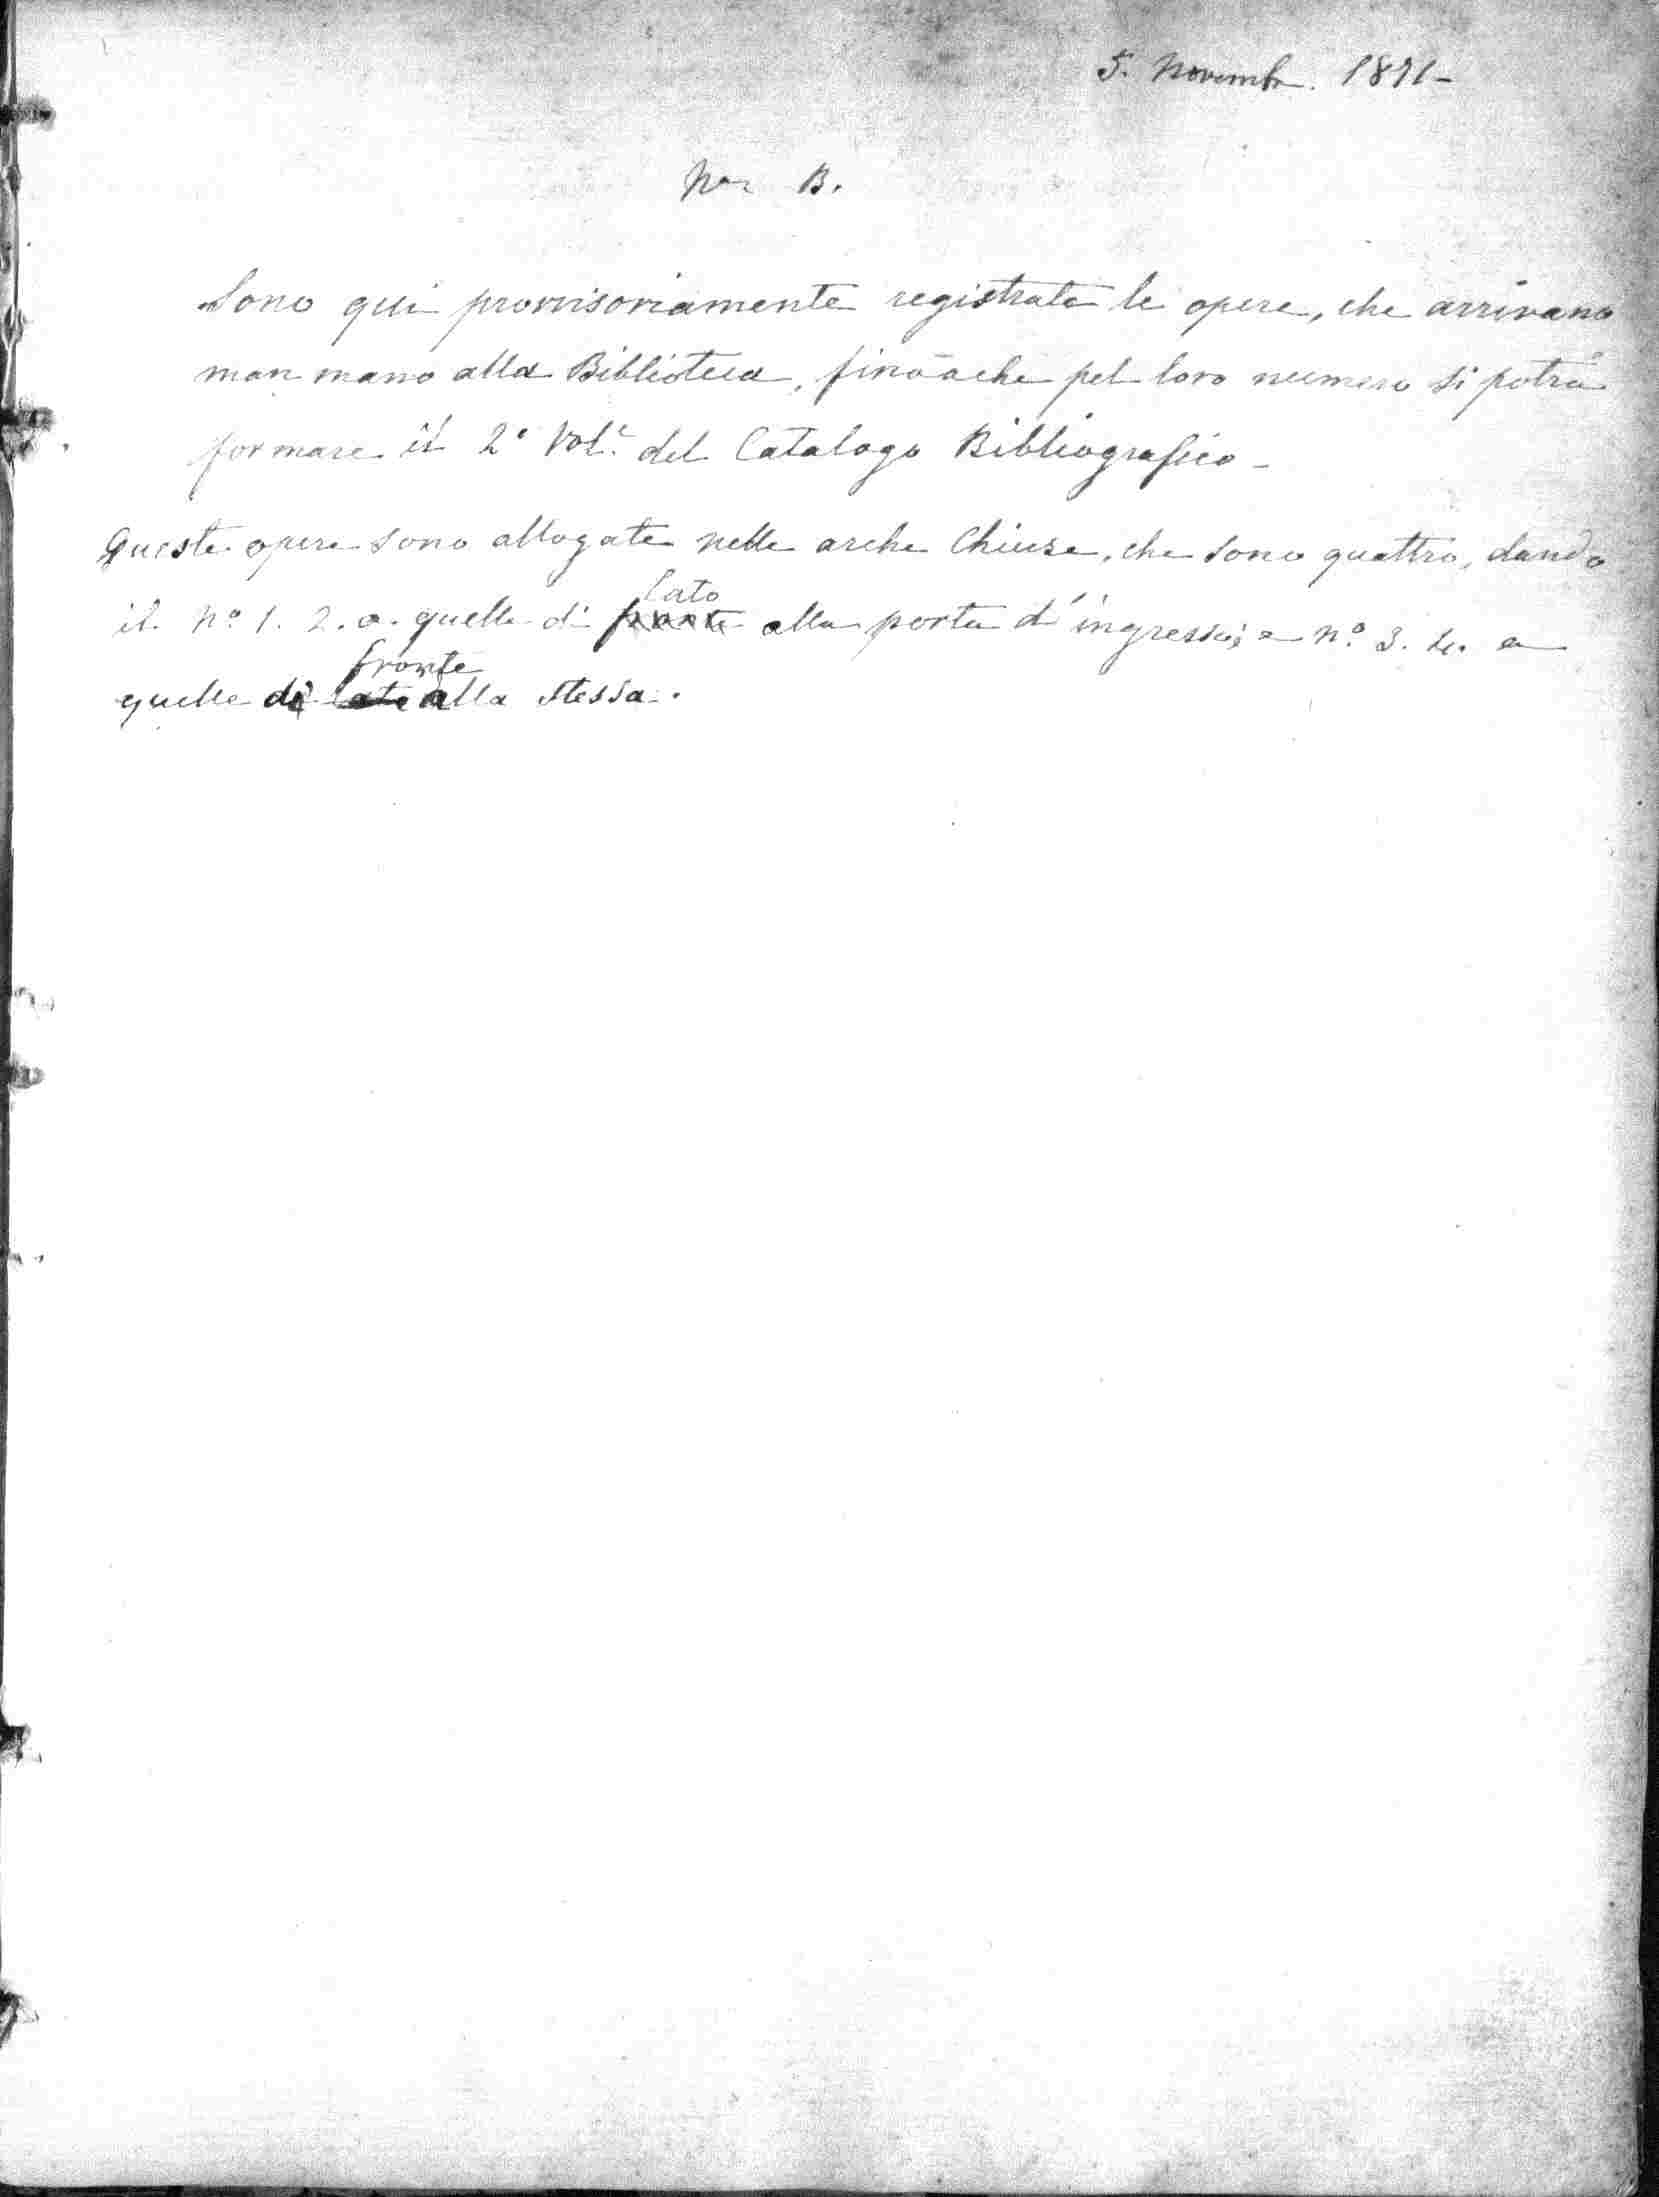 5. Novembr. 1891-
B.
Sono qui provvisoriamente registrate le opere, che arrivano
man mano alla Biblioteca, fino a che pel loro numero si potrà
formare il 2º Vol.e del Catalogo Bibliografico-
Queste opere sono allogate nelle arche chiuse, che sono quattro, dando
lato
il nº 1. 2. a quelle di fronte alla porta d'ingresso; e nº 3. 4. a
fronte
quelle di lato alla stessa.